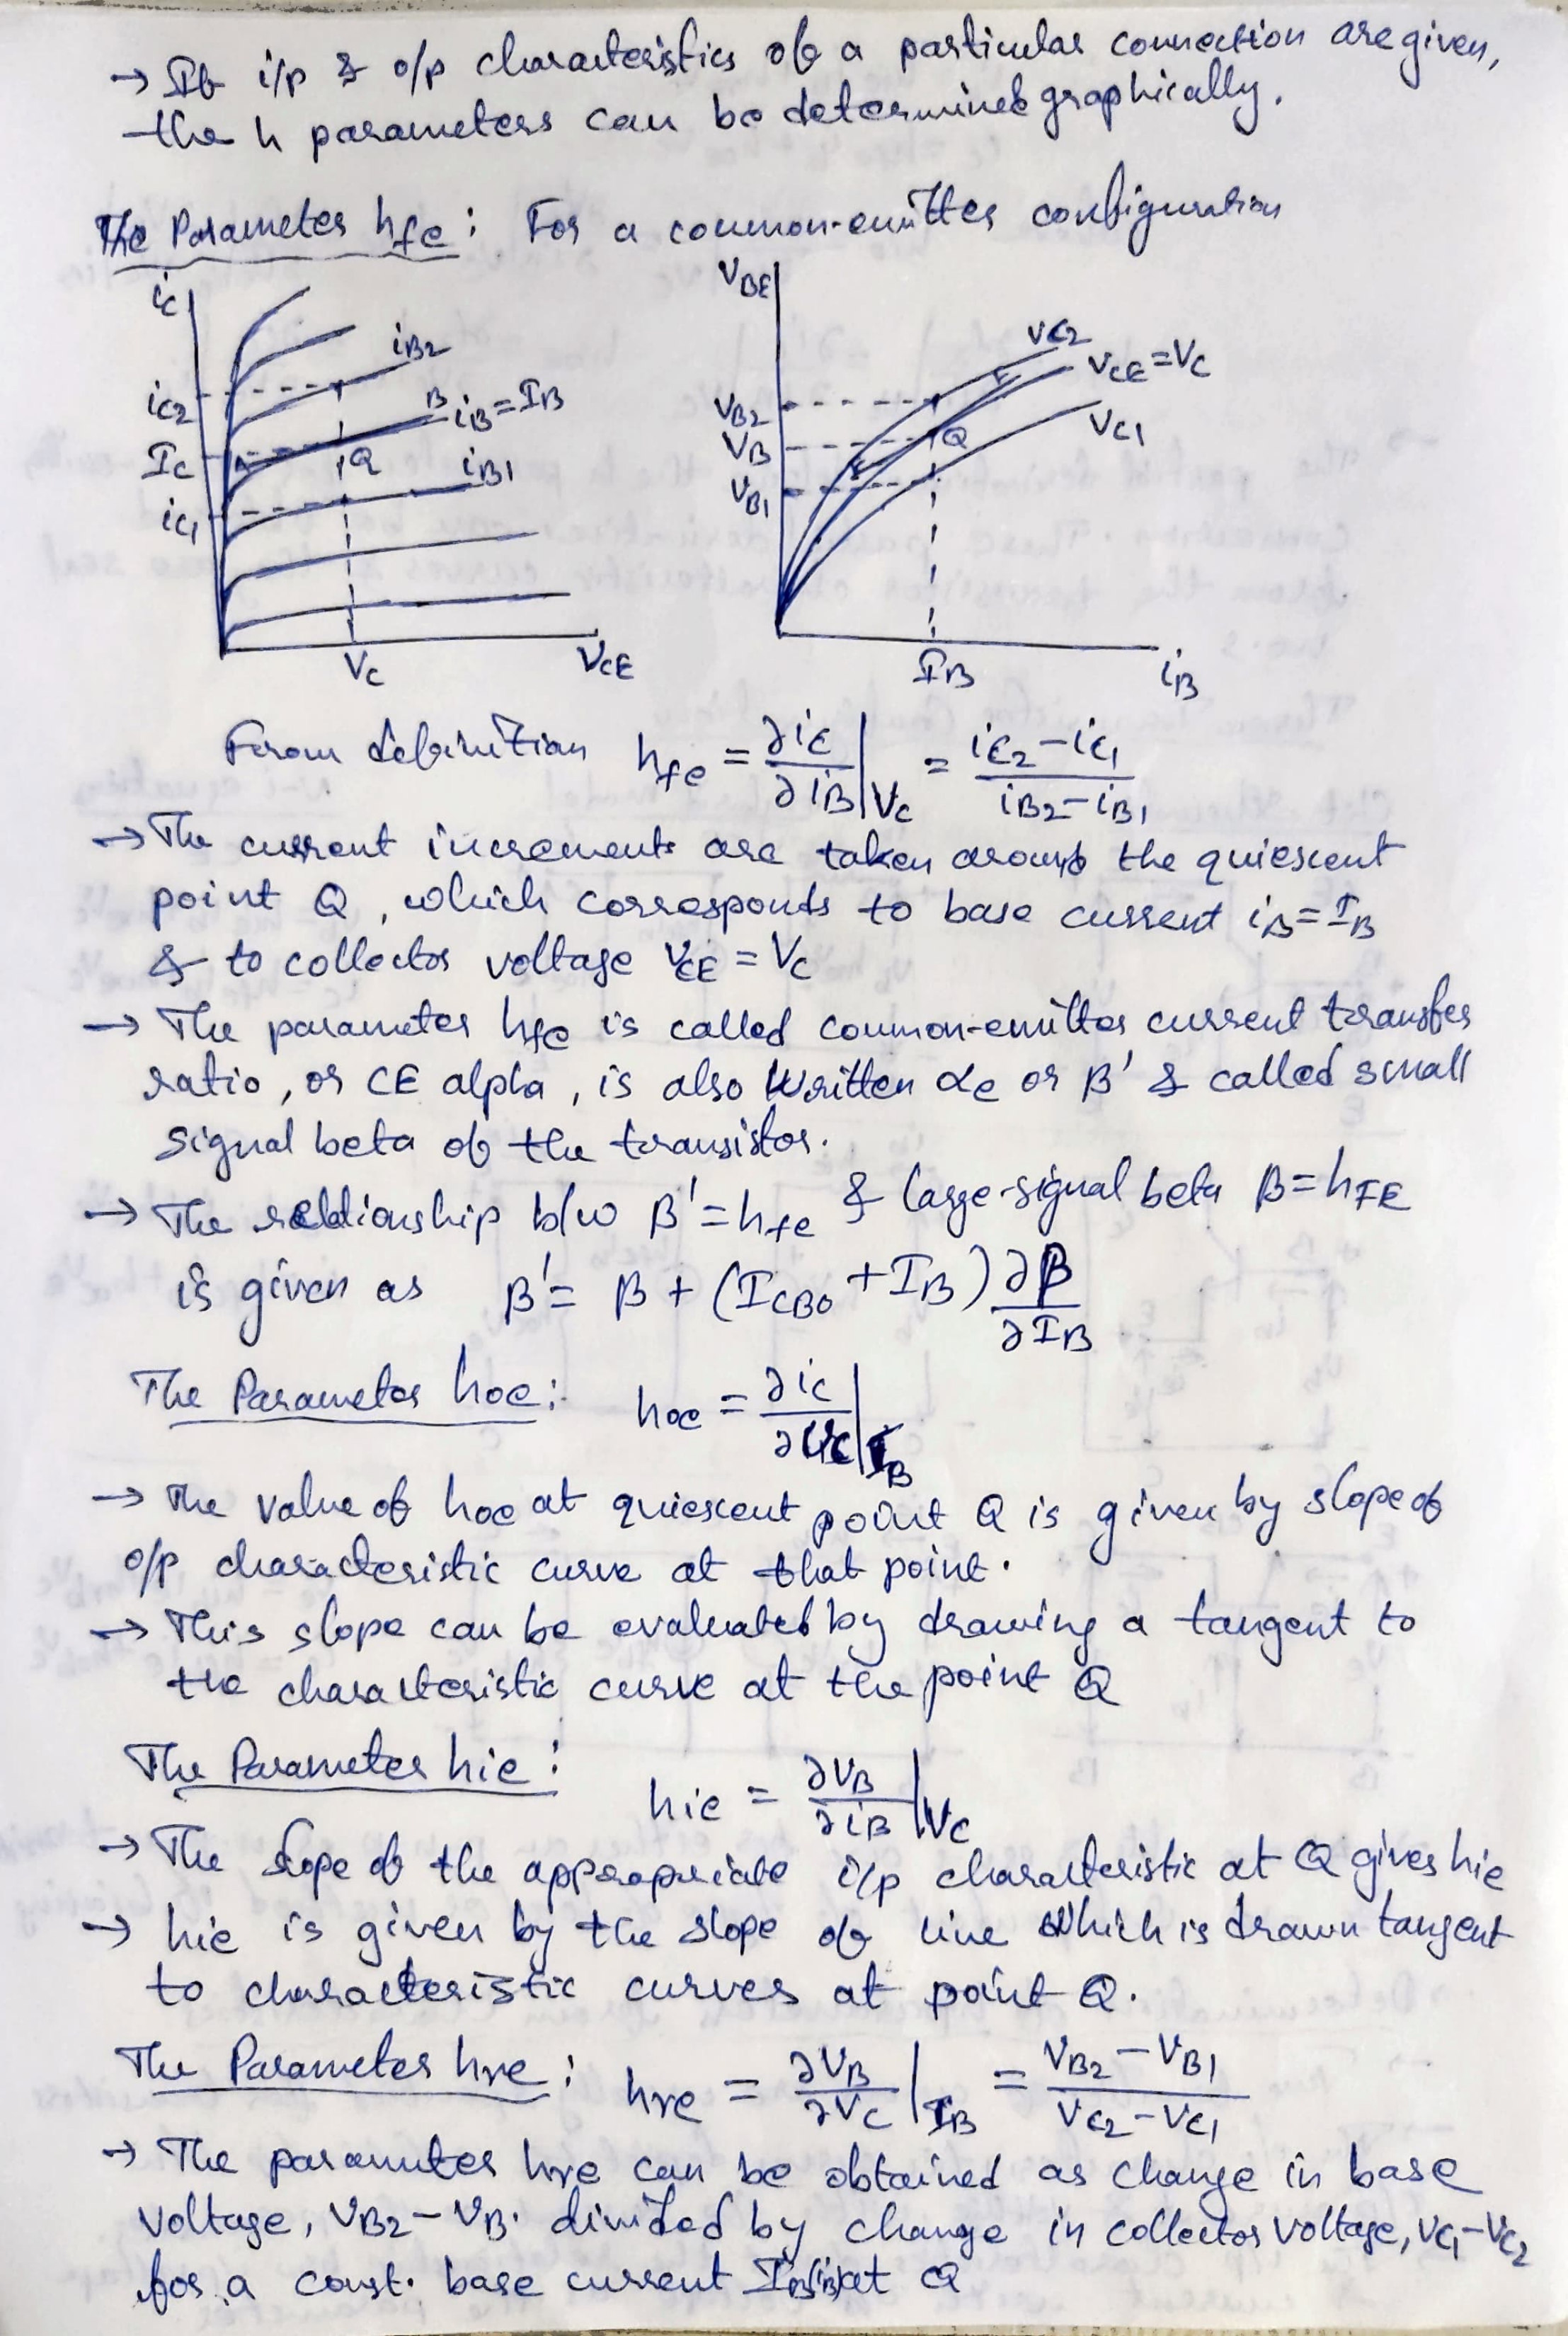 → If i/p & o/p characteristics of a particular connection are given,
the h parameters can be determined graphically.
The Parameter hfe : For a common-emitter configuration
iC
iB2
iC2
B
iB = IB
IC
A
Q
iB1
iC1
VC
VCE
VBE
VC2
VCE = VC
VB2
VC1
VB
Q
VB1
IB
iB
From definition hfe = ∂iC/∂iB |VC = (iC2 − iC1)/(iB2 − iB1)
→ The current increments are taken around the quiescent
point Q, which corresponds to base current iB = IB
& to collector voltage VCE = VC
→ The parameter hfe is called common-emitter current transfer
ratio, or CE alpha, is also written αe or β' & called small
signal beta of the transistor.
→ The relationship b/w β' = hfe & large-signal beta β = hFE
is given as β' = β + (ICBO + IB) ∂β/∂IB
The Parameter hoe : hoe = ∂iC/∂VC |IB
→ The value of hoe at quiescent point Q is given by slope of
o/p characteristic curve at that point.
→ This slope can be evaluated by drawing a tangent to
the characteristic curve at the point Q
The Parameter hie : hie = ∂VB/∂iB |VC
→ The slope of the appropriate i/p characteristic at Q gives hie
→ hie is given by the slope of line which is drawn tangent
to characteristic curves at point Q.
The Parameter hre : hre = ∂VB/∂VC |IB = (VB2 − VB1)/(VC2 − VC1)
→ The parameter hre can be obtained as change in base
voltage, VB2 − VB1 divided by change in collector voltage, VC1 − VC2
for a const. base current IB at Q